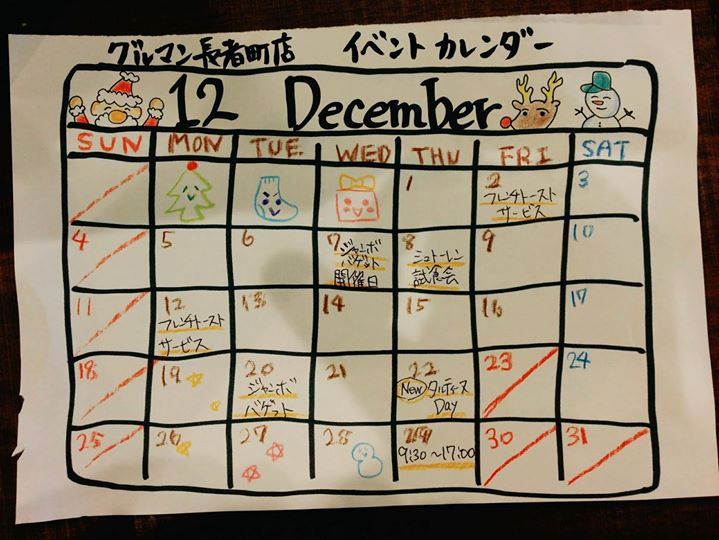 グルマン長者町店 イベントカレンダー
12 December
SUN MON TUE WED THU FRI SAT
1 2 3
フレンチトースト
サービス
4 5 6 7 8 9 10
ジャンボ
バゲット
開催日
シュトーレン
試食会
11 12 13 14 15 16 17
フレンチトースト
サービス
18 19 20 21 22 23 24
ジャンボ
バゲット
New タルティーヌ
Day
25 26 27 28 29 30 31
9:30~17:00